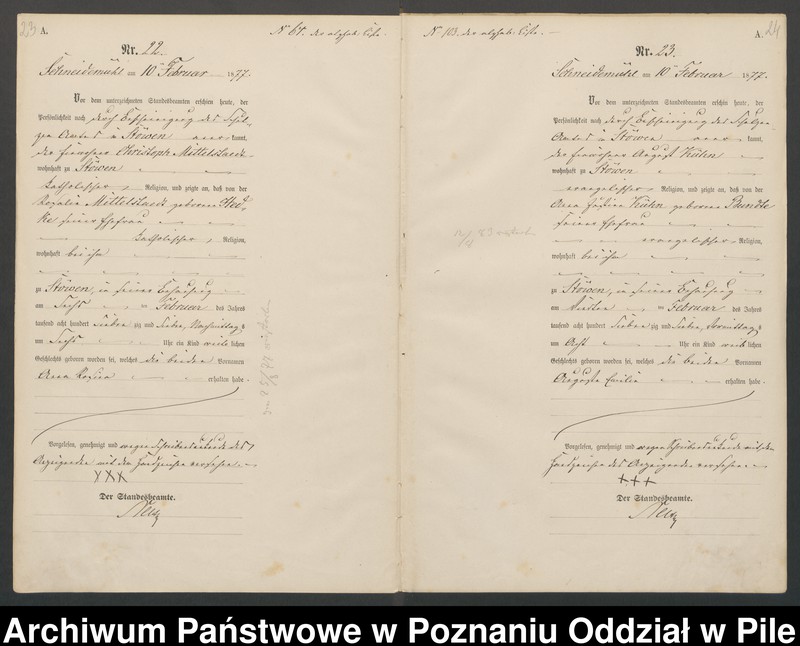 23 A.
Nr. 22.
Schneidemühl am 10ten Februar 1877.
Vor dem unterzeichneten Standesbeamten erschien heute, der
Persönlichkeit nach durch Bescheinigung des Schul-
zen Amtes à Stöwen anerkannt,
der Einwohner Christoph Mittelstaedt
wohnhaft zu Stöwen
katholischer Religion, und zeigte an, daß von der
Rosalia Mittelstaedt geborene
seiner Ehefrau
katholischer Religion,
wohnhaft bei ihm
zu Stöwen, in seiner Behausung
am Sechs ten Februar des Jahres
tausend acht hundert sieben zig und sieben, Nachmittags
um Sechs Uhr ein Kind weiblichen
Geschlechts geboren worden sei, welches die beiden Vornamen
Anna Rosina erhalten habe.
Vorgelesen, genehmigt und wegen Schreibensunkunde des
Anzeigenden mit den Handzeichen versehen.
XXX
Der Standesbeamte.
N 103. der alphab. Liste.
A. 24
Nr. 23.
Schneidemühl am 10ten Februar 1877.
Vor dem unterzeichneten Standesbeamten erschien heute, der
Persönlichkeit nach durch Bescheinigung des Schulzen
Amtes à Stöwen anerkannt,
der Einwohner August Kühn
wohnhaft zu Stöwen
evangelischer Religion, und zeigte an, daß von der
Kühn geborene
seiner Ehefrau
evangelischer Religion,
wohnhaft bei ihm
zu Stöwen, in seiner Behausung
am Vierten Februar des Jahres
tausend acht hundert sieben zig und sieben, Vormittags
um Acht Uhr ein Kind weiblichen
Geschlechts geboren worden sei, welches die beiden Vornamen
Auguste Emilie erhalten habe.
Vorgelesen, genehmigt und wegen Schreibensunkunde mit den
Handzeichen des Anzeigenden versehen.
+++
Der Standesbeamte.
Archiwum Państwowe w Poznaniu Oddział w Pile